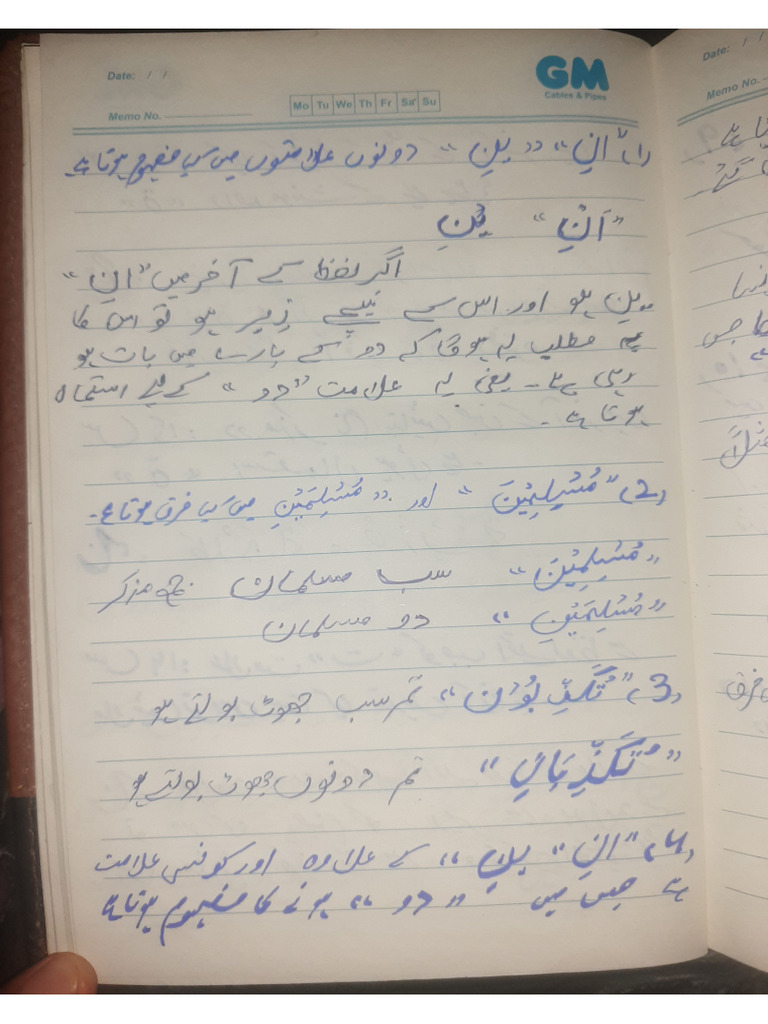 Date: / /
GM
Cables & Pipes
Memo No.
Mo Tu We Th Fr Sat Su
(1) "انِ" "ینِ" دونوں علامتوں میں کیا مفہوم ہوتا ہے
"اَنِ" یْنِ
اگر لفظ کے آخر میں "انِ"
ینِ ہو اور اس کے نیچے زیر ہو تو اس کا
یہ مطلب یہ ہوگا کہ دو کے بارے میں بات ہو
رہی ہے۔ یعنی یہ علامت "دو" کے لیے استعمال
ہوتا ہے۔
(2) "مُسْلِمِیْنَ" اور "مُسْلِمَیْنِ" میں کیا فرق ہوتا ہے۔
"مُسْلِمِیْنَ" سب مسلمان جمع مذکر
"مُسْلِمَیْنِ" دو مسلمان
(3) "تُکَذِّبُوْنَ" تم سب جھوٹ بولتے ہو
"تُکَذِّبَانِ" تم دونوں جھوٹ بولتے ہو
(4) "انِ" "ینِ" کے علاوہ اور کونسی علامت
ہے جس میں "دو" ہونے کا مفہوم ہوتا ہے
Date: / /
Memo No.